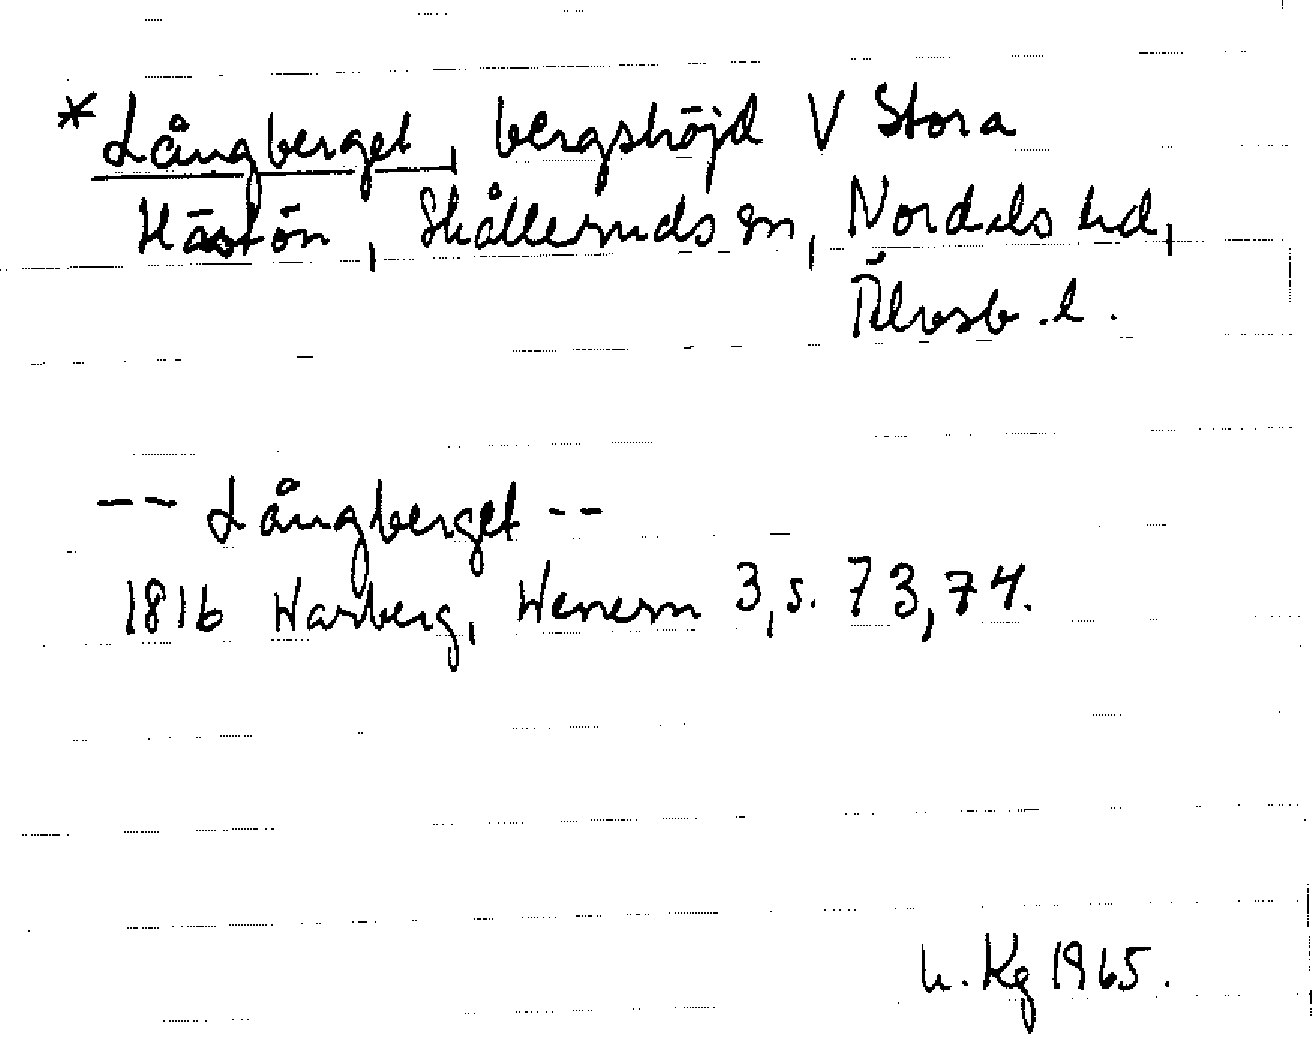 *Långberget, bergshöjd V Stora
Hästön, Skålleruds sn, Nordals hd,
Älvsb. l.
-- Långberget --
1816 Warberg, Wenern 3, s. 73, 74.
Kg 1965.